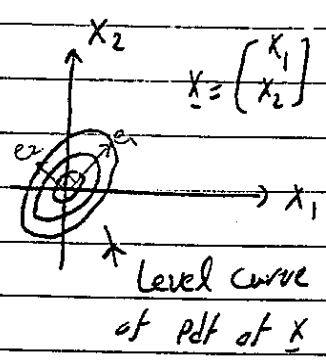 X₂
X = [X₁
X₂]
e₂ e₁
X₁
Level curve
of pdf of X